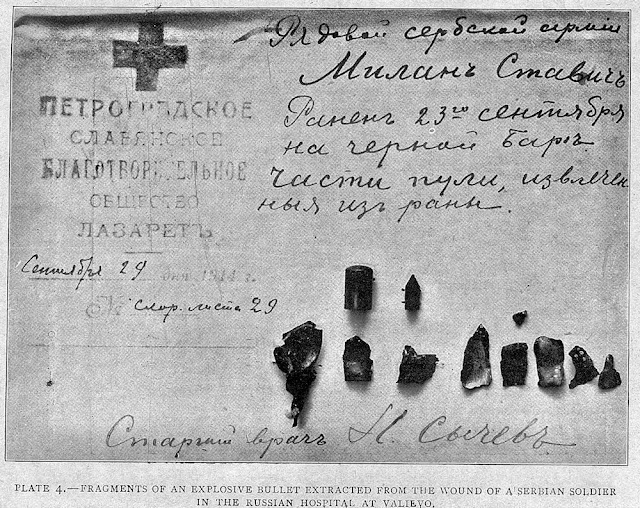 Рядовой сербской армiи
Миланъ Ставичъ
Раненъ 23го сентября
на черной Барѣ.
части пули, извлечен
ныя изъ раны.
ПЕТРОГРАДСКОЕ
СЛАВЯНСКОЕ
БЛАГОТВОРИТЕЛЬНОЕ
ОБЩЕСТВО
ЛАЗАРЕТЪ
Сентября 29 дня 1914 г.
№ скор. листа 29
Старшiй врачъ Н. Сычевъ
PLATE 4.—FRAGMENTS OF AN EXPLOSIVE BULLET EXTRACTED FROM THE WOUND OF A SERBIAN SOLDIER
IN THE RUSSIAN HOSPITAL AT VALIEVO.